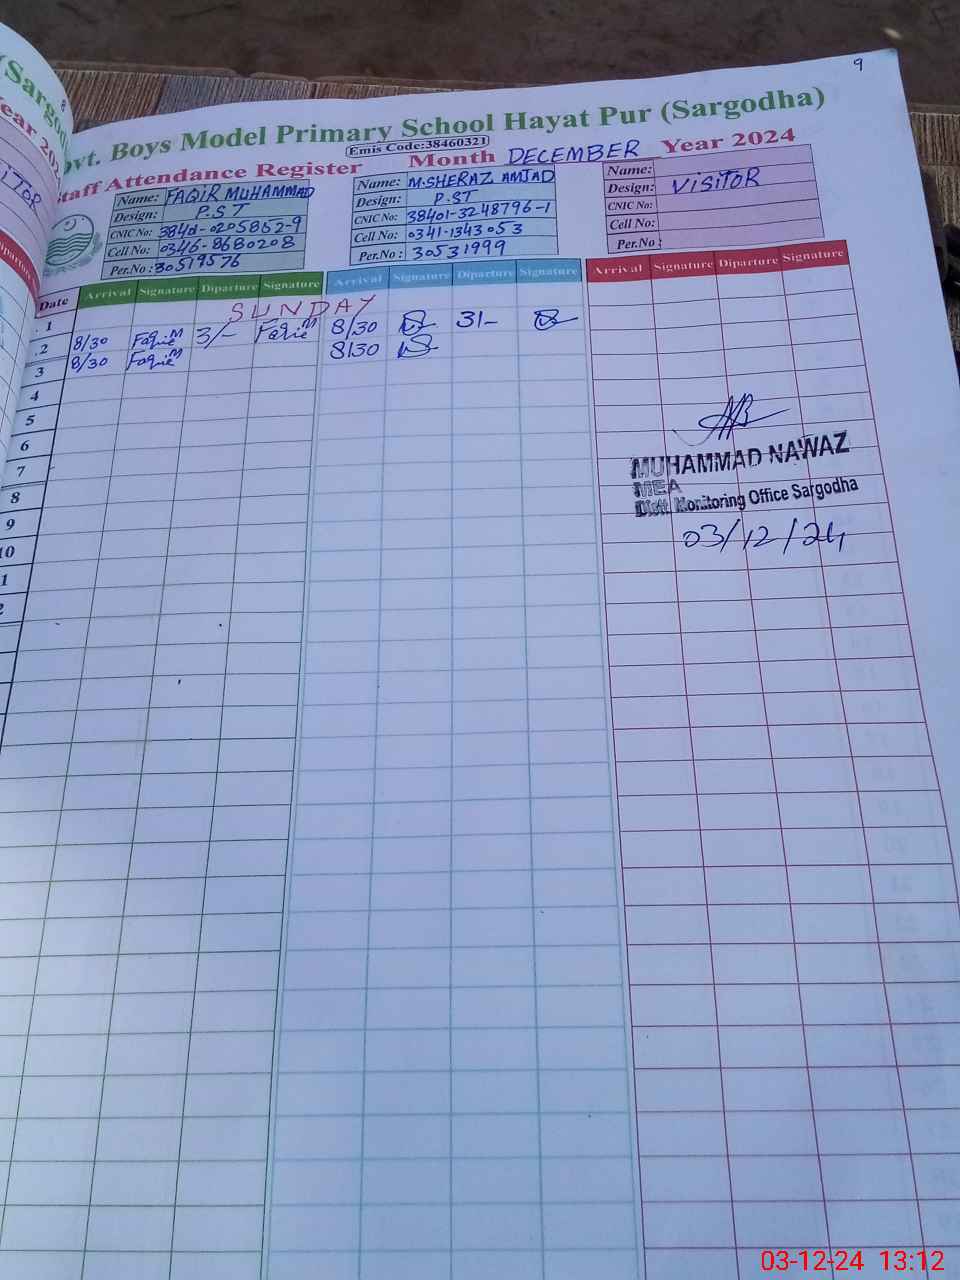 9
Govt. Boys Model Primary School Hayat Pur (Sargodha)
Emis Code:38460321
Staff Attendance Register Month DECEMBER Year 2024
Name: FAQIR MUHAMMAD
Design: P.ST
CNIC No:
Cell No: 0346-8680208
Per.No : 30519576
Name: M.SHERAZ AMJAD
Design: P.ST
CNIC No: 38401-3248796-1
Cell No: 0341-1343053
Per.No : 30531999
Name:
Design: VISITOR
CNIC No:
Cell No:
Per.No :
Date Arrival Signature Diparture Signature Arrival Signature Diparture Signature Arrival Signature Diparture Signature
1 SUNDAY
2 8/30 3/- 8/30 3/-
3 8/30 8/30
4
5
6
7
8
9
10
MUHAMMAD NAWAZ
MEA
Distt. Monitoring Office Sargodha
03/12/24
03-12-24 13:12